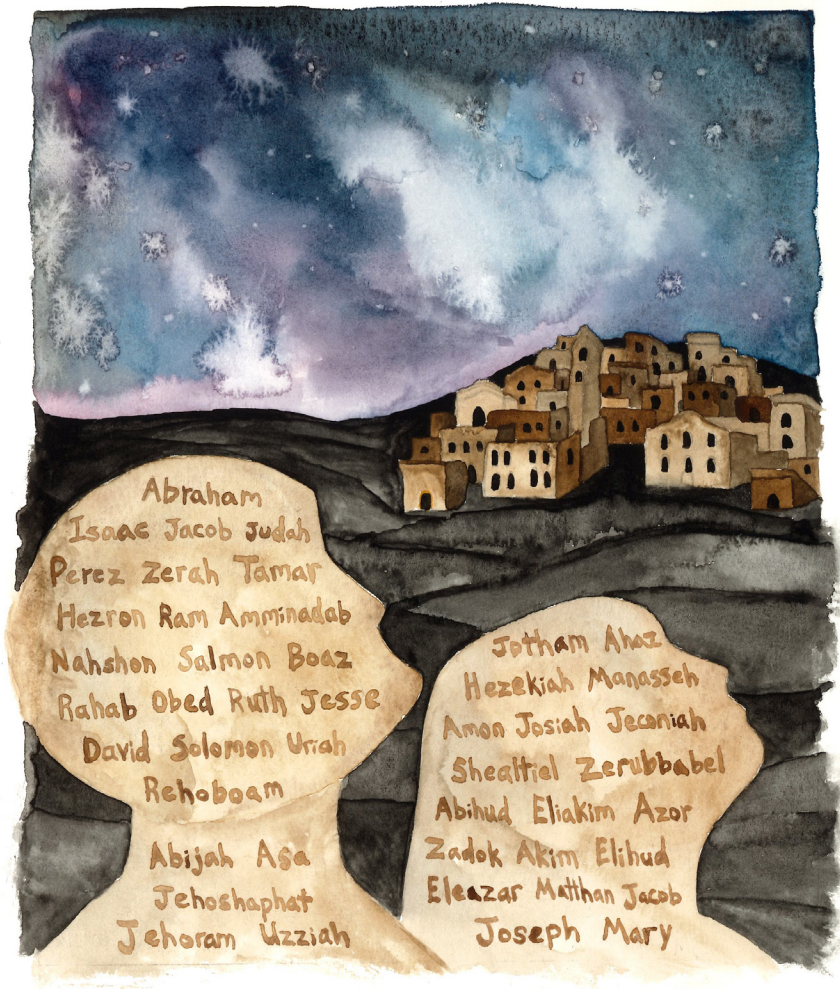 Abraham
Isaac Jacob Judah
Perez Zerah Tamar
Hezron Ram Amminadab
Nahshon Salmon Boaz
Rahab Obed Ruth Jesse
David Solomon Uriah
Rehoboam
Abijah Asa
Jehoshaphat
Jehoram Uzziah
Jotham Ahaz
Hezekiah Manasseh
Amon Josiah Jeconiah
Shealtiel Zerubbabel
Abihud Eliakim Azor
Zadok Akim Elihud
Eleazar Matthan Jacob
Joseph Mary